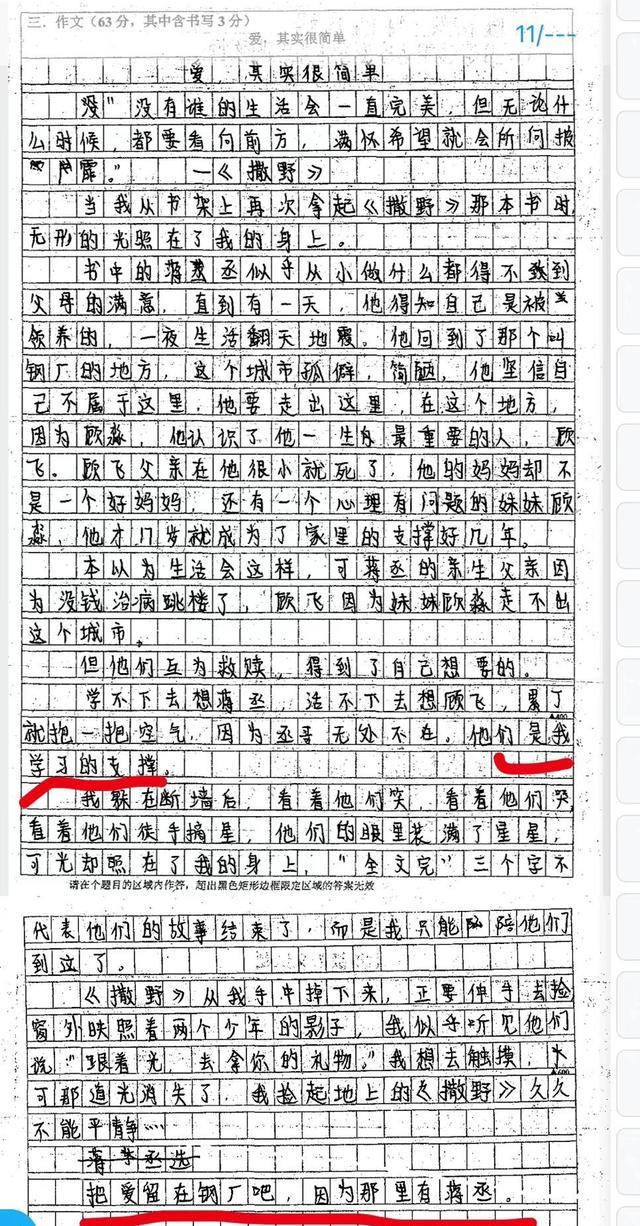 三. 作文(63分，其中含书写3分)
11/---
爱，其实很简单
爱，其实很简单
"没有谁的生活会一直完美，但无论什
么时候，都要看向前方，满怀希望就会所向披
靡。" —《撒野》
当我从书架上再次拿起《撒野》那本书时，
无形的光照在了我的身上。
书中的蒋丞似乎从小做什么都得不到
父母的满意，直到有一天，他得知自己是被
领养的，一夜生活翻天地覆。他回到了那个叫
钢厂的地方，这个城市孤僻，简陋，他坚信自
己不属于这里，他要走出这里，在这个地方，
因为顾淼，他认识了他一生最重要的人，顾
飞。顾飞父亲在他很小就死了，他的妈妈却不
是一个好妈妈，还有一个心理有问题的妹妹顾
淼，他才17岁就成为了家里的支撑好几年。
本以为生活会这样，可蒋丞的亲生父亲因
为没钱治病跳楼了，顾飞因为妹妹顾淼走不出
这个城市。
但他们互为救赎，得到了自己想要的。
学不下去想蒋丞，活不下去想顾飞，累了
就抱一抱空气，因为丞哥无处不在。他们是我
▲400
学习的支撑。
我躲在断墙后，看着他们笑，看着他们哭，
看着他们徒手摘星，他们的眼里装满了星星，
可光却照在了我的身上，"全文完"三个字不
请在个题目的区域内作答，超出黑色矩形边框限定区域的答案无效
代表他们的故事结束了，而是我只能陪他们
到这了。
《撒野》从我手中掉下来，正要伸手去捡
窗外映照着两个少年的影子，我似乎听见他们
说"跟着光，去拿你的礼物。"我想去触摸，
▲600
可那道光消失了，我捡起地上的《撒野》久久
不能平静……
把爱留在钢厂吧，因为那里有蒋丞。